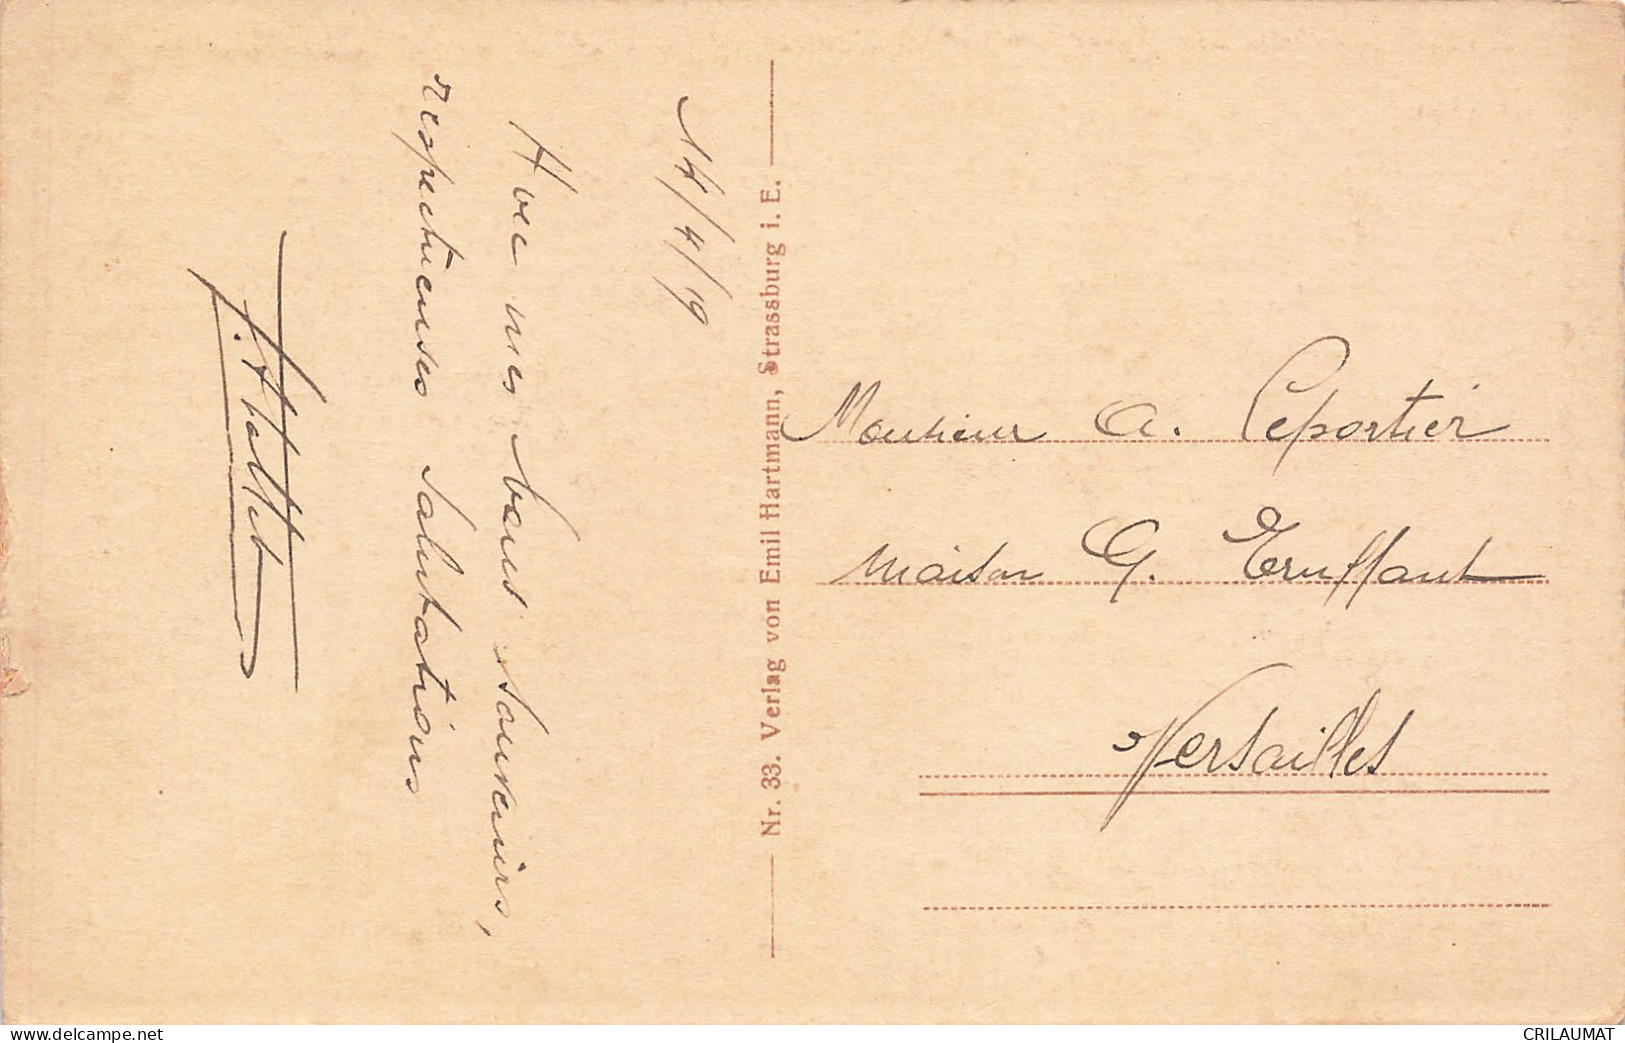 14/4/19
Avec mes bons souvenirs,
respectueuses salutations
Nr. 33. Verlag von Emil Hartmann, Strassburg i. E.
Monsieur A. Leportier
maison G. Truffaut
Versailles
www.delcampe.net
CRILAUMAT